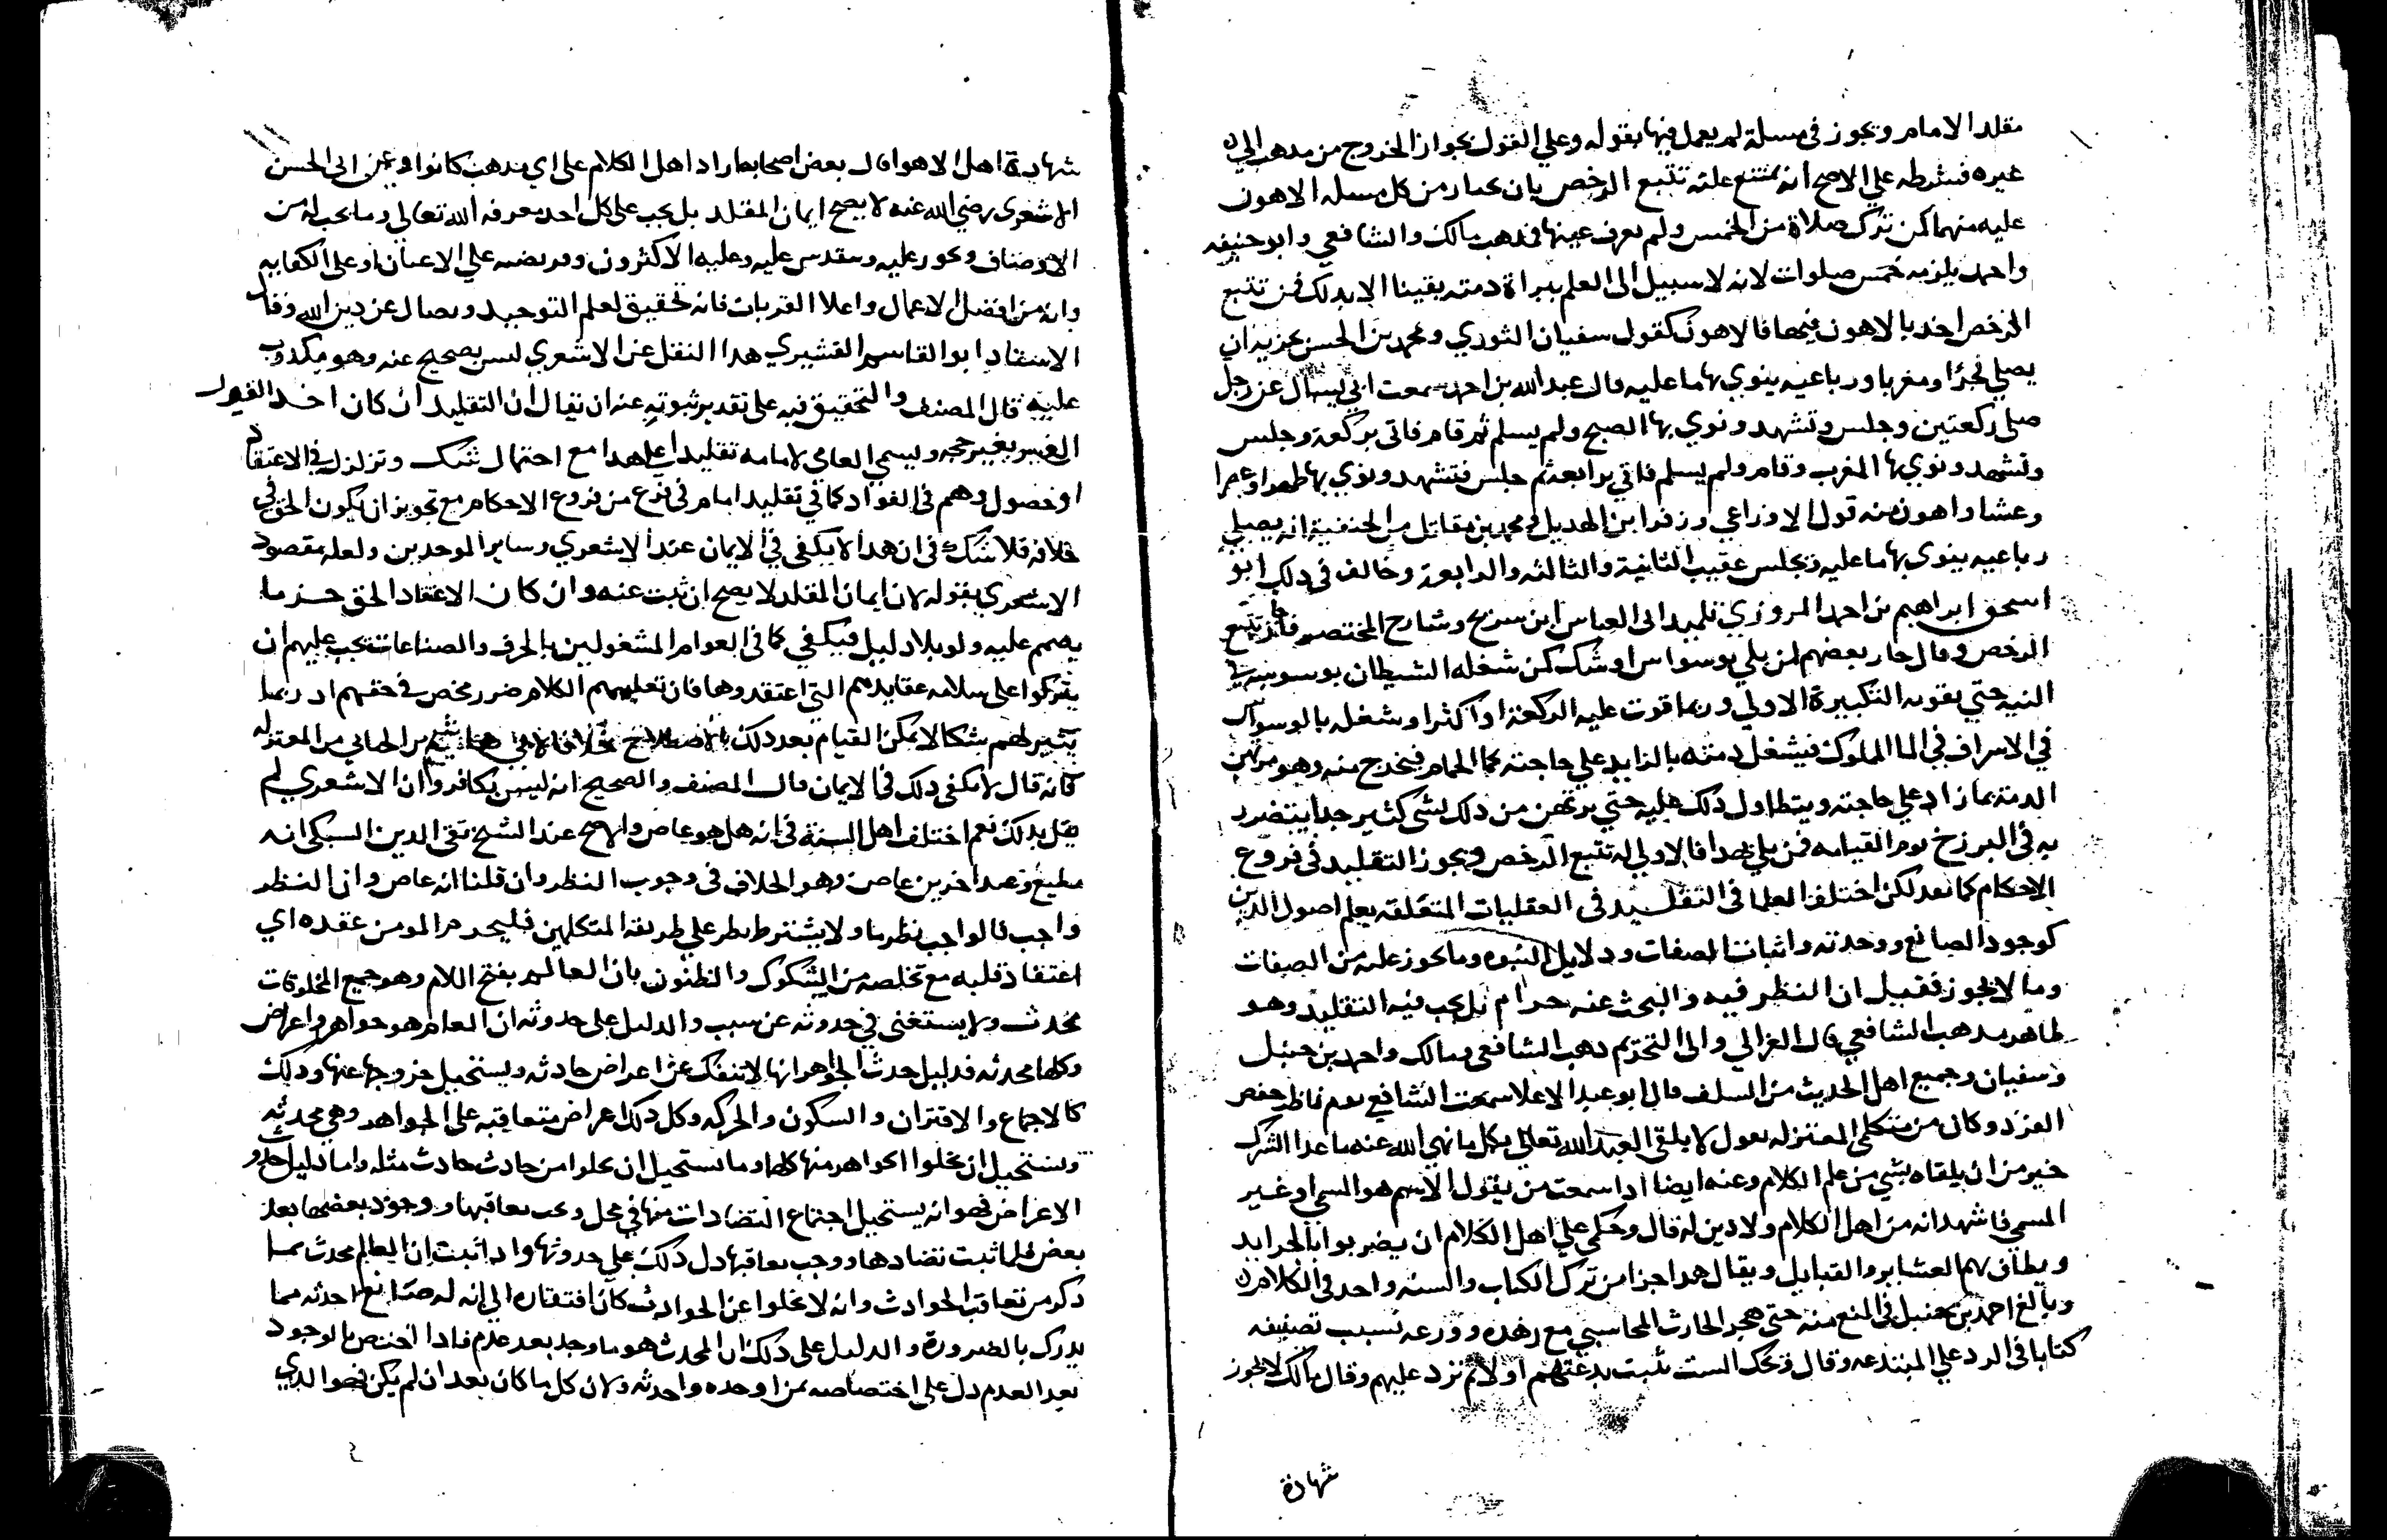 مقلدا لامام ويجوز في مسلة لم يعمل فيها بقوله وعلي القول بجواز الخروج من مذهب الي
غيره فشرطه علي الاصح انه يمتنع عليه تتبع الرخص بان يختار من كل مسله الاهون
عليه منهما كمن ترك صلاة من الخمس ولم يعرف عينها فمذهب مالك والشافعي وابو حنيفه
واحمد يلزمه خمس صلوات لانه لا سبيل الى العلم ببراة دمته يقينا الا بدلك فمن تتبع
الرخص اخد بالاهون فيها فالاهون كقول سفيان الثوري ومحمد بن الحسن يجزيه ان
يصلي فجرا ومغربا ورباعيه ينوي بها ما عليه قال عبد الله بن احمد سمعت ابي يسال عن رجل
صلى ركعتين وجلس وتشهد ونوي بها الصبح ولم يسلم ثم قام فاتى بركعة وجلس
وتشهد ونوي بها المغرب وقام ولم يسلم فاتي برابعة ثم جلس فتشهد ونوي بها ظهرا وعصرا
وعشا واهون منه قول الاوزاعي وزفر ابن الهديل ومحمد بن مقاتل من الحنفية انه يصلي
رباعيه ينوى بها ما عليه ويجلس عقيب الثانية والثالثه والرابعة وخالف في دلك ابو
اسحق ابراهيم بن احمد المروزي تلميد ابى العباس ابن سريج وشارح المختصر فجاز تتبع
الرخص وقال جار بعضهم لمن بلي بوسواس او شك كمن شغله الشيطان بوسوسته في
النيه حتي يفوته التكبيرة الاولي وربما فوت عليه الركعة او اكثر او شغله بالوسواس
في الاسراف في الما المملوك فيشغل دمته بالزايد علي حاجته كما الحمام فيخرج منه وهو مرتهن
الدمة بما زاد علي حاجته ويتطاول دلك عليه حتي يرتهن من دلك بشى كثير جدا يتضرر
به في البرزخ يوم القيامه فمن بلي بهدا فالاولي له تتبع الرخص ويجوز التقليد في فروع
الاحكام كما تعد لكن اختلف العلما في التقليد في العقليات المتعلقه بعلم اصول الدين
كوجود الصانع ووحدته واثبات الصفات ودلايل النبوه وما يجوز عليه من الصفات
وما لا يجوز فقيل ان النظر فيه والبحث عنه حرام بل يجب فيه التقليد وهو
ظاهر مدهب الشافعي قال الغزالي والى التحريم دهب الشافعي ومالك واحمد بن حنبل
وسفيان وجميع اهل الحديث من السلف قال ابو عبد الاعلا سمعت الشافعي يوم ناظر حفص
الفرد وكان من متكلمي المعتزله يقول لا يلقى العبد الله تعالي بكل ما نهي الله عنه ما عدا الشرك
خير من ان يلقاه بشي من علم الكلام وعنه ايضا ادا سمعت من يقول الاسم هو المسمي او غير
المسمي فاشهد انه من اهل الكلام ولا دين له قال وحكمي علي اهل الكلام ان يضربوا بالجرايد
ويطاف بهم العشاير والقبايل ويقال هدا جزا من ترك الكتاب والسنه واخد في الكلام
وبالغ احمد بن حنبل في المنع منه حتى هجر الحارث المحاسبي مع زهده وورعه بسبب تصنيفه
كتابا في الرد علي المبتدعه وقال ويحك الست تثبت بدعتهم اولا ثم ترد عليهم وقال مالك لا يجوز
شهادة
شهادة اهل الاهوا قال بعض اصحابه اراد اهل الكلام على اي مدهب كانوا وعن ابى الحسن
الاشعري رضي الله عنه لا يصح ايمان المقلد بل يجب على كل احد معرفه الله تعالي وما يجب له من
الاوصاف ويجوز عليه ويتقدس عليه وعليه الاكثرون وفرضه علي الاعيان او على الكفايه
وانه من افضل الاعمال واعلا القربات فانه تحقيق لعلم التوحيد ويصال عن دين الله وقال
الاستاد ابو القاسم القشيري هدا النقل عن الاشعري ليس بصحيح عنه وهو مكدوب
عليه قال المصنف والتحقيق فيه على تقدير ثبوته عنه ان يقال ان التقليد ان كان اخد القول
الغير بغير حجه ويسمي العامي لامامه تقليدا علي هدا مع احتمال شك وتزلزل في الاعتقاد
او حصول وهم في الفواد كما في تقليد امام في فرع من فروع الاحكام مع تجويز ان يكون الحق في
خلافه فلا شك في ان هدا لا يكفي في الايمان عند الاشعري وساير الموحدين ولعله مقصود
الاشعري بقوله لان ايمان المقلد لا يصح ان ثبت عنه وان كان الاعتقاد الحق جزما
يصمم عليه ولو بلا دليل فيكفي كما في العوام المشغولين بالحرف والصناعات يجب عليهم ان
يتركوا على سلامه عقايدهم التي اعتقدوها فان تعليمهم الكلام ضرر محض في حقهم اد ربما
يثير لهم شكا لا يمكن القيام بعد دلك بالاصلاح خلافا لابي هاشم بن الجبائي من المعتزله
كانه قال لا يكفي دلك في الايمان قال المصنف والصحيح انه ليس بكافر وان الاشعري لم
يقل بدلك نعم اختلف اهل السنة في انه هل هو عاص والاصح عند الشيخ تقى الدين السبكي انه
مطيع وعند اخرين عاص وهو الخلاف في وجوب النظر وان قلنا انه عاص وان النظر
واجب فالواجب نظر ما ولا يشترط نظر علي طريقه المتكلمين فليجزم المومن عقده اي
اعتقاد قلبه مع تخلصه من الشكوك والظنون بان العالم بفتح اللام وهو جميع المخلوقات
محدث ولا يستغنى في حدوثه عن سبب والدليل على حدوثه ان العالم هو جواهر واعراض
وكلها محدثه فدليل حدث الجواهر انها لا تنفك عن اعراض حادثه ويستحيل خروجها عنها ودلك
كالاجماع والافتران والسكون والحركه وكل دلك اعراض متعاقبه على الجواهر وهي محدثه
ويستحيل ان تخلوا الجواهر منها كلها وما يستحيل ان يخلوا من حادث حادث مثله واما دليل حدوث
الاعراض فهو انه يستحيل اجتماع التضادات منها في محل ويجب تعاقبها ووجود بعضها بعد
بعض فلما ثبت تضادها ووجب تعاقبها دل دلك علي حدوثها وادا ثبت ان العالم محدث بما
دكر من تعاقب الحوادث وانه لا يخلوا عن الحوادث كان افتقاره الي انه له صانع احدثه مما
يدرك بالضرورة والدليل على دلك ان المحدث هو ما وجد بعد عدم فادا اختص بالوجود
بعد العدم دل على اختصاصه بمن اوحده واحدثه ولان كل ما كان بعد ان لم يكن فهو الدي